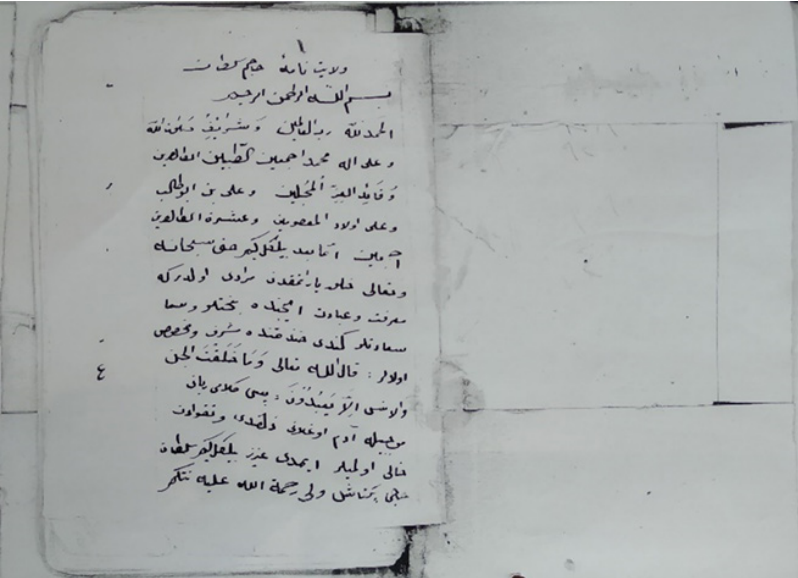 ١
ولايت نامهٔ حاجم سلطان
بسم الله الرحمن الرحيم
الحمد لله رب العالمين و صلى الله
و على اله محمد اجمعين الطيبين الطاهرين
و قايد الغر المحجلين و على بن ابوطالب
و على اولاد المعصومين و عشرة الطاهرين
اجمعين اما بعد بيلكل كيم حق سبحانه
و تعالى خلق ياراتمقدن مرادى اولدركه
معرفت و عبادت ايچنده بختلو و
سعادتلو كندى قتنده مشرف و مخصوص
اولالر : قال الله تعالى وَمَا خَلَقْتُ الجن
والانس اِلَّا لِيَعْبُدُونَ : پس كلام ربانى
موجبيله آدم اوغلانى و تقوادن
خالى اولميلر ايمدى عزيز بيلكل كيم سلطان
حاجى بكتاش ولى رحمة الله عليه
٤